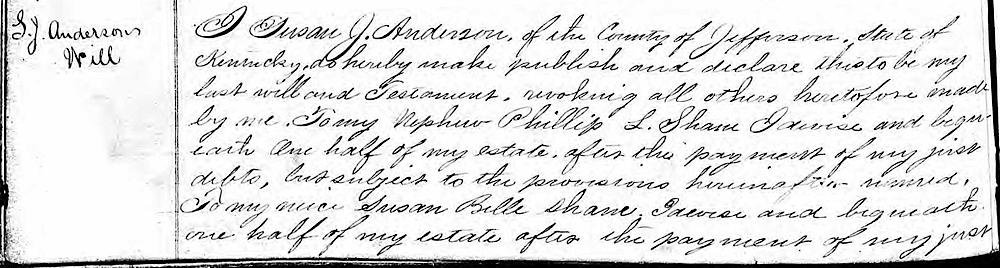 S. J. Andersons
Will
I Susan J. Anderson, of the County of Jefferson, State of
Kentucky, do hereby make publish and declare this to be my
last will and Testament, revoking all others heretofore made
by me. To my Nephew Phillip L. Shane I devise and bequ-
eath One half of my estate, after the payment of my just
debts, but subject to the provisions hereinafter named.
To my neice Susan Belle Shane, I devise and bequeath
one half of my estate after the payment of my just